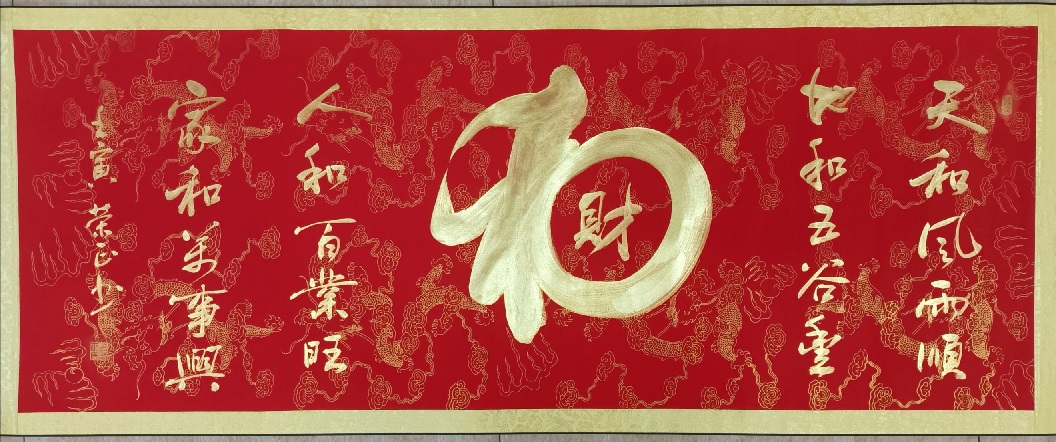 天和風雨順
地和五谷豐
和
財
人和百業旺
家和萬事興
壬寅 榮正書